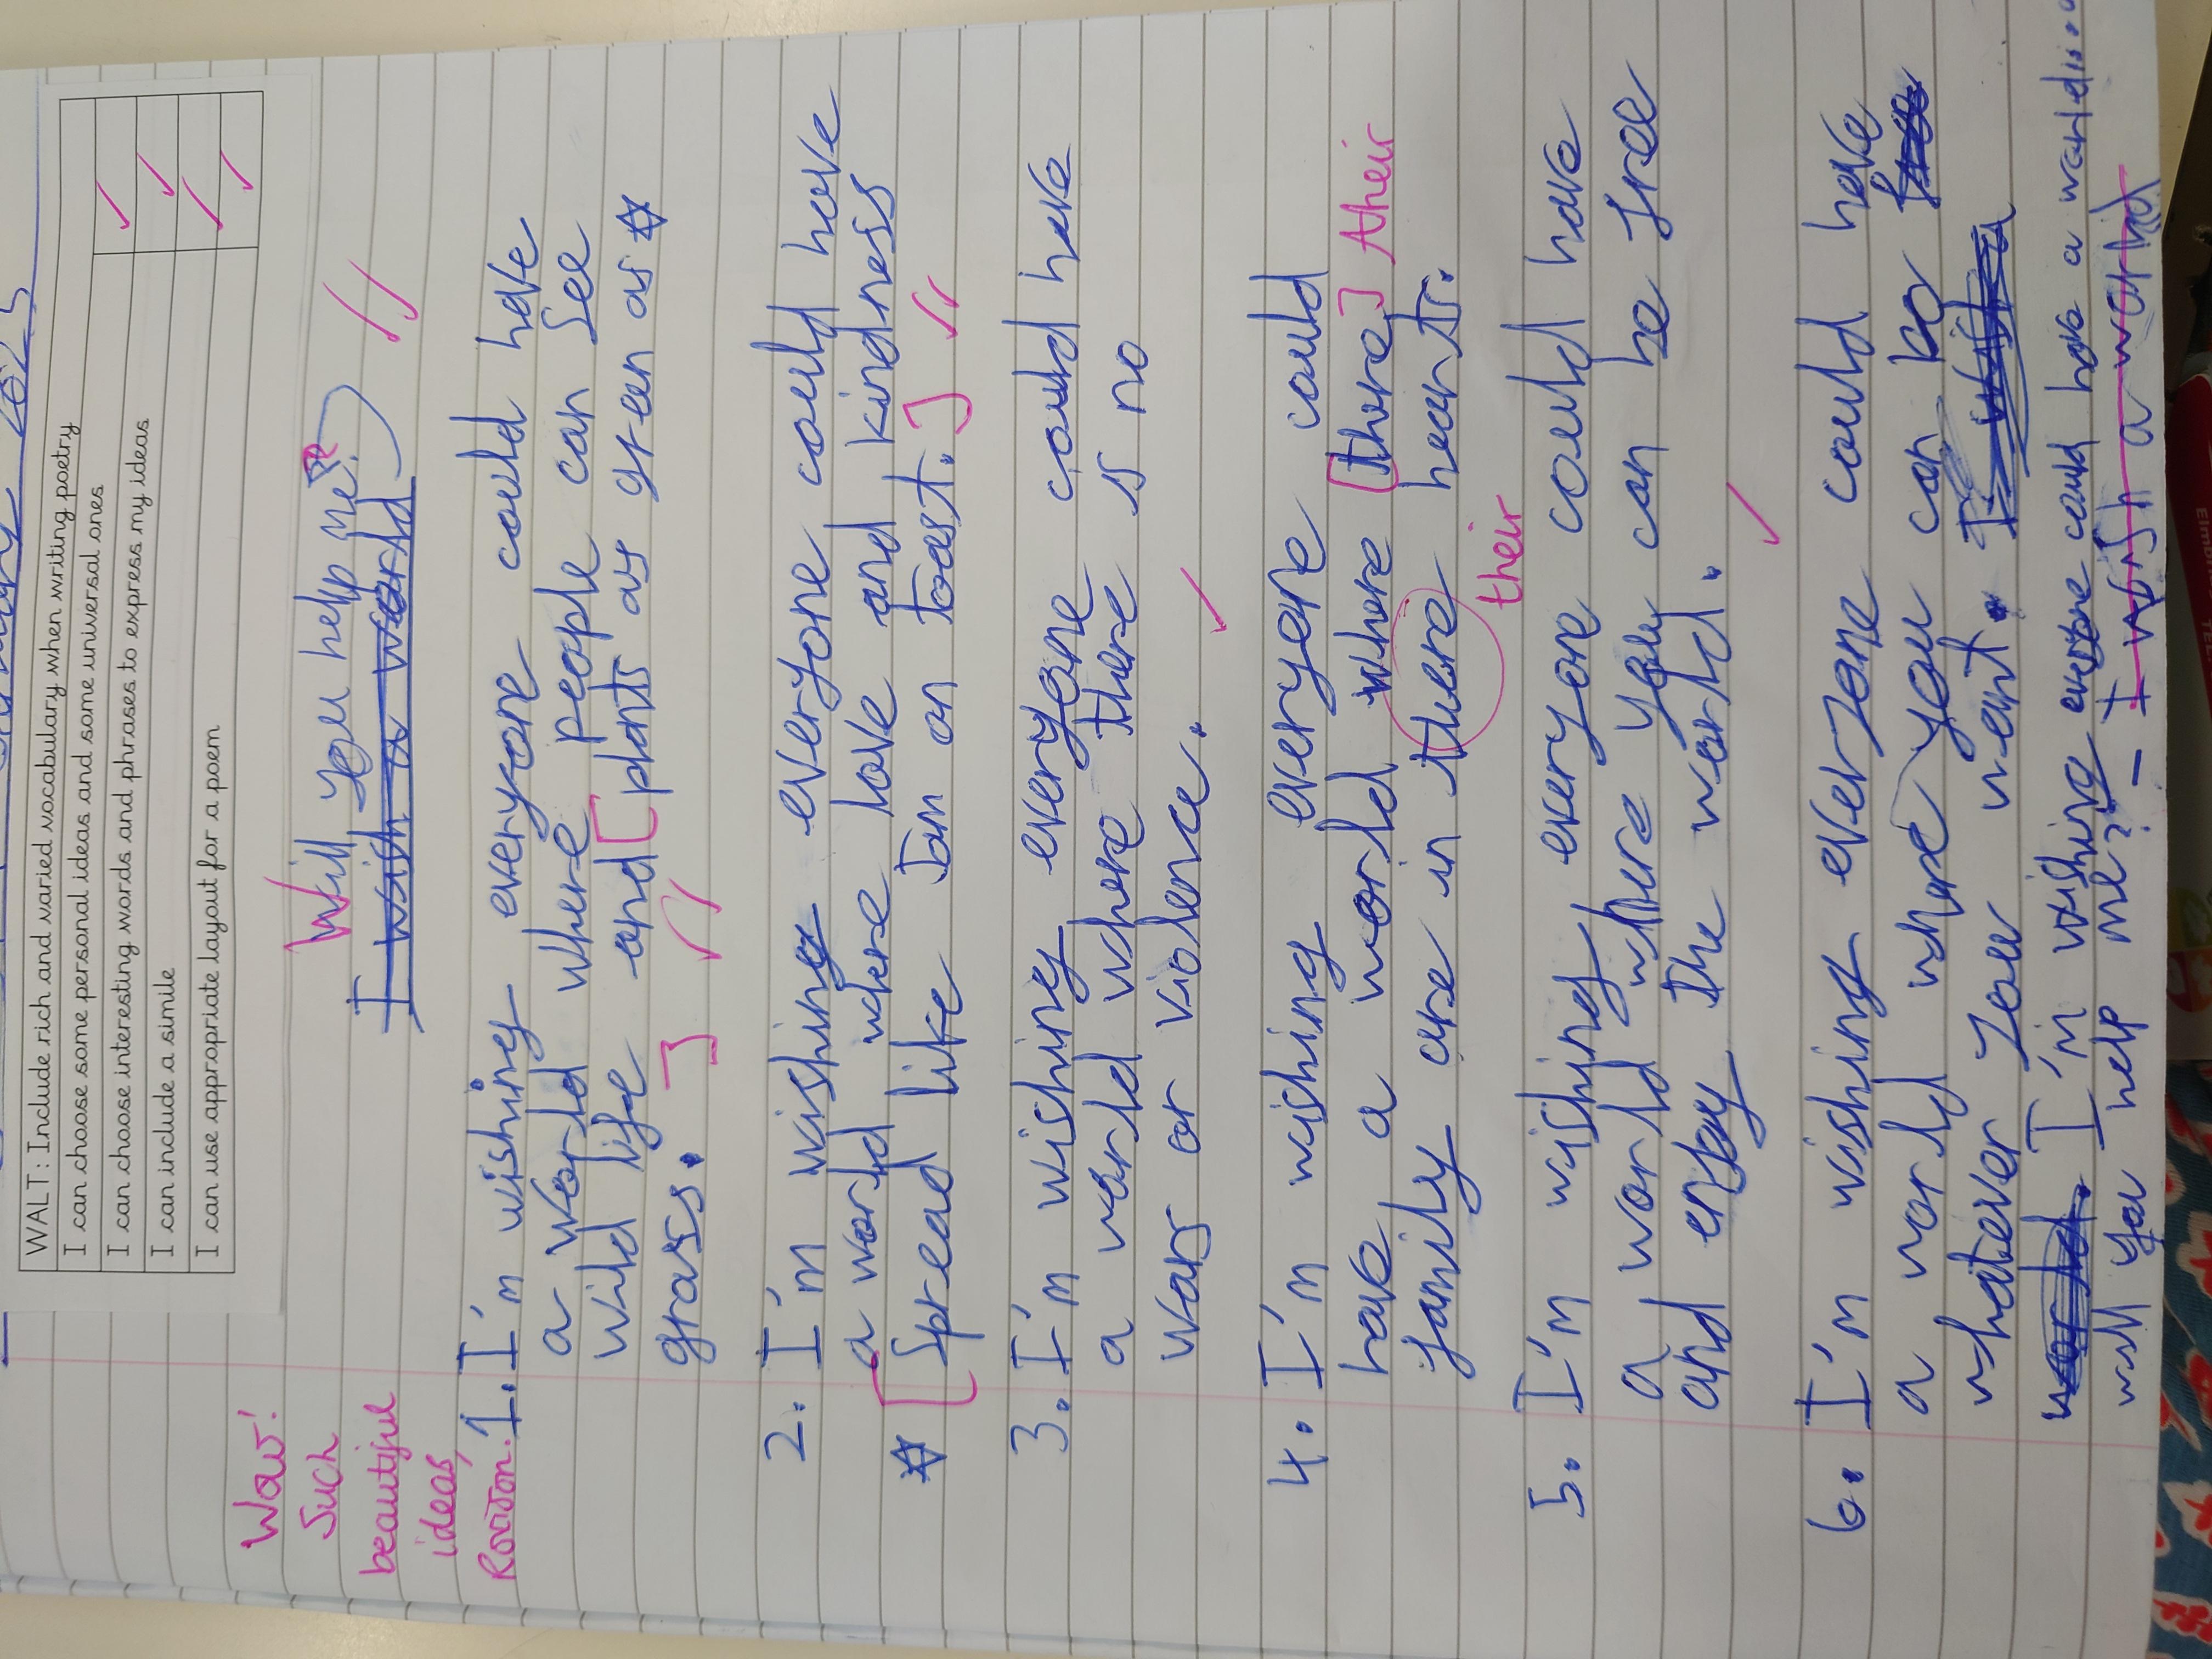 2025
WALT: Include rich and varied vocabulary when writing poetry
I can choose some personal ideas and some universal ones
I can choose interesting words and phrases to express my ideas
I can include a simile
I can use appropriate layout for a poem
Wow!
Such
beautiful
ideas,
Will you help me?
I wish a world
1. I'm wishing everyone could have
a world where people can see
wild life and [plants as green as
grass. ]
2. I'm wishing everyone could have
a world where love and kindness
[Spread like Jam on toast. ]
3. I'm wishing everyone could have
a world where there is no
wars or violence.
4. I'm wishing everyone could
have a world where [there] their
family are in there hearts.
their
5. I'm wishing everyone could have
a world where you can be free
and enjoy the world.
6. I'm wishing everzone could have
a world where you can be free
whatever zou want. I wish a
world. I'm wishing everone could have a world...
will you help me? - I wish a world